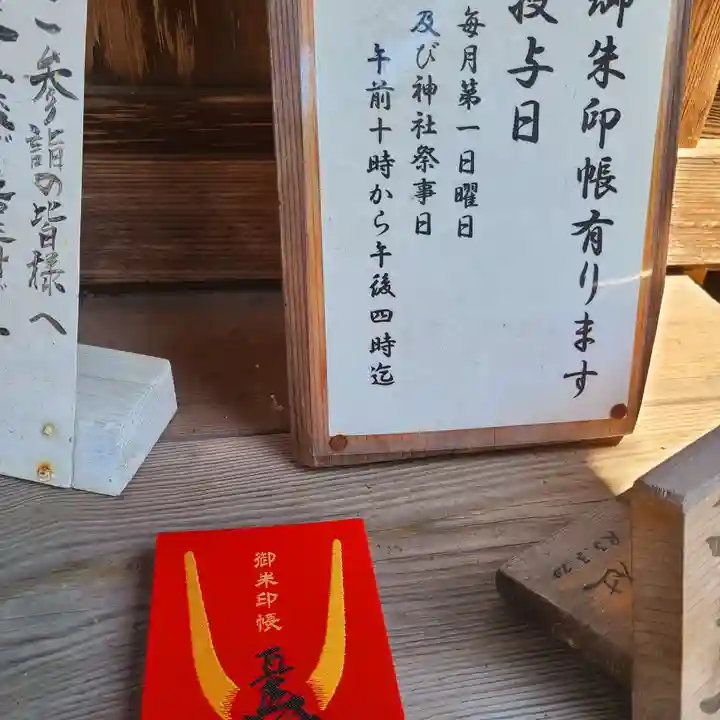 御朱印帳有ります
授与日
毎月第一日曜日
及び神社祭事日
午前十時から午後四時迄
ご参詣の皆様へ
御朱印帳
R3.3.20